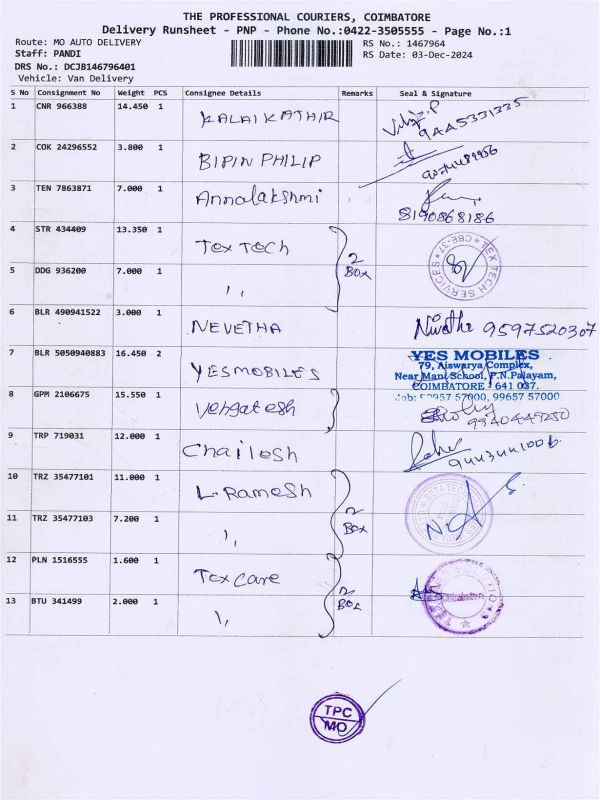 THE PROFESSIONAL COURIERS, COIMBATORE
Delivery Runsheet - PNP - Phone No.:0422-3505555 - Page No.:1
Route: MO AUTO DELIVERY RS No.: 1467964
Staff: PANDI RS Date: 03-Dec-2024
DRS No.: DCJB146796401
Vehicle: Van Delivery
S No Consignment No Weight PCS Consignee Details Remarks Seal & Signature
1 CNR 966388 14.450 1 KALAIKATHIR 9445331335
2 COK 24296552 3.800 1 BIPIN PHILIP
3 TEN 7863871 7.000 1 Annalakshmi 8190868186
4 STR 434409 13.350 1 Tex Tech 2 BOX TEX TECH SERVICES CBE-37
5 DDG 936200 7.000 1 ,,
6 BLR 490941522 3.000 1 NEVETHA Nivetha 9597520307
7 BLR 5050940883 16.450 2 YESMOBILES YES MOBILES
79, Aiswarya Complex,
Near Mani School, P.N.Palayam,
COIMBATORE - 641 037.
57000, 99657 57000
8 GPM 2106675 15.550 1 Vengatesh 9940449250
9 TRP 719031 12.000 1 Chailesh 9443441006
10 TRZ 35477101 11.000 1 L. Ramesh 2 BOX
11 TRZ 35477103 7.200 1 ,,
12 PLN 1516555 1.600 1 Tex care 2 BOX
13 BTU 341499 2.000 1 ,,
TPC
MO